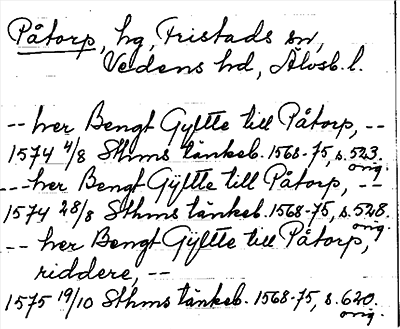 Påtorp, hg, Fristads sn,
Vedens hd, Älvsb. l.
-- her Bengt Gyltte till Påtorp, --
1574 4/8 Sthms tänkeb. 1568-75, s. 523.
orig.
-- her Bengt Gÿltte till Påtorp, --
1574 28/8 Sthms tänkeb. 1568-75, s. 528.
orig.
-- her Bengt Gÿltte till Påtorp,
riddere, --
1575 19/10 Sthms tänkeb. 1568-75, s. 620.
orig.